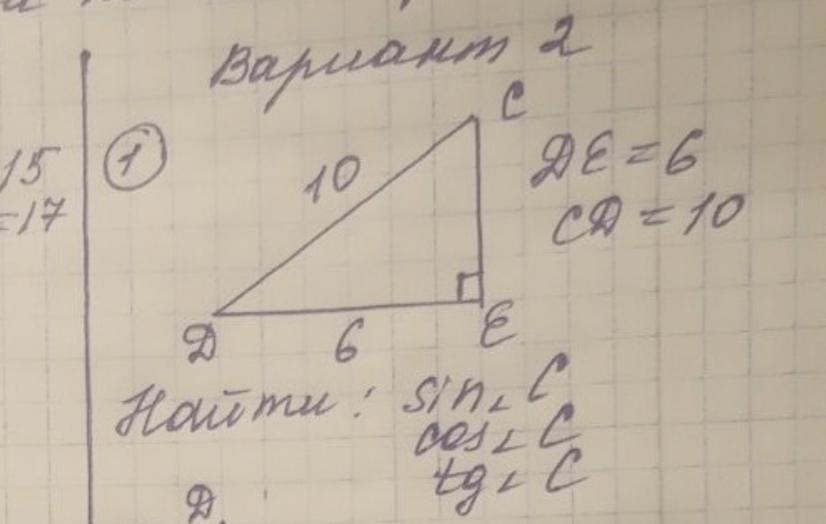 Вариант 2
15
=17
1
C
10
DE = 6
CD = 10
D
6
E
Найти: sin ∠ C
cos ∠ C
tg ∠ C
D